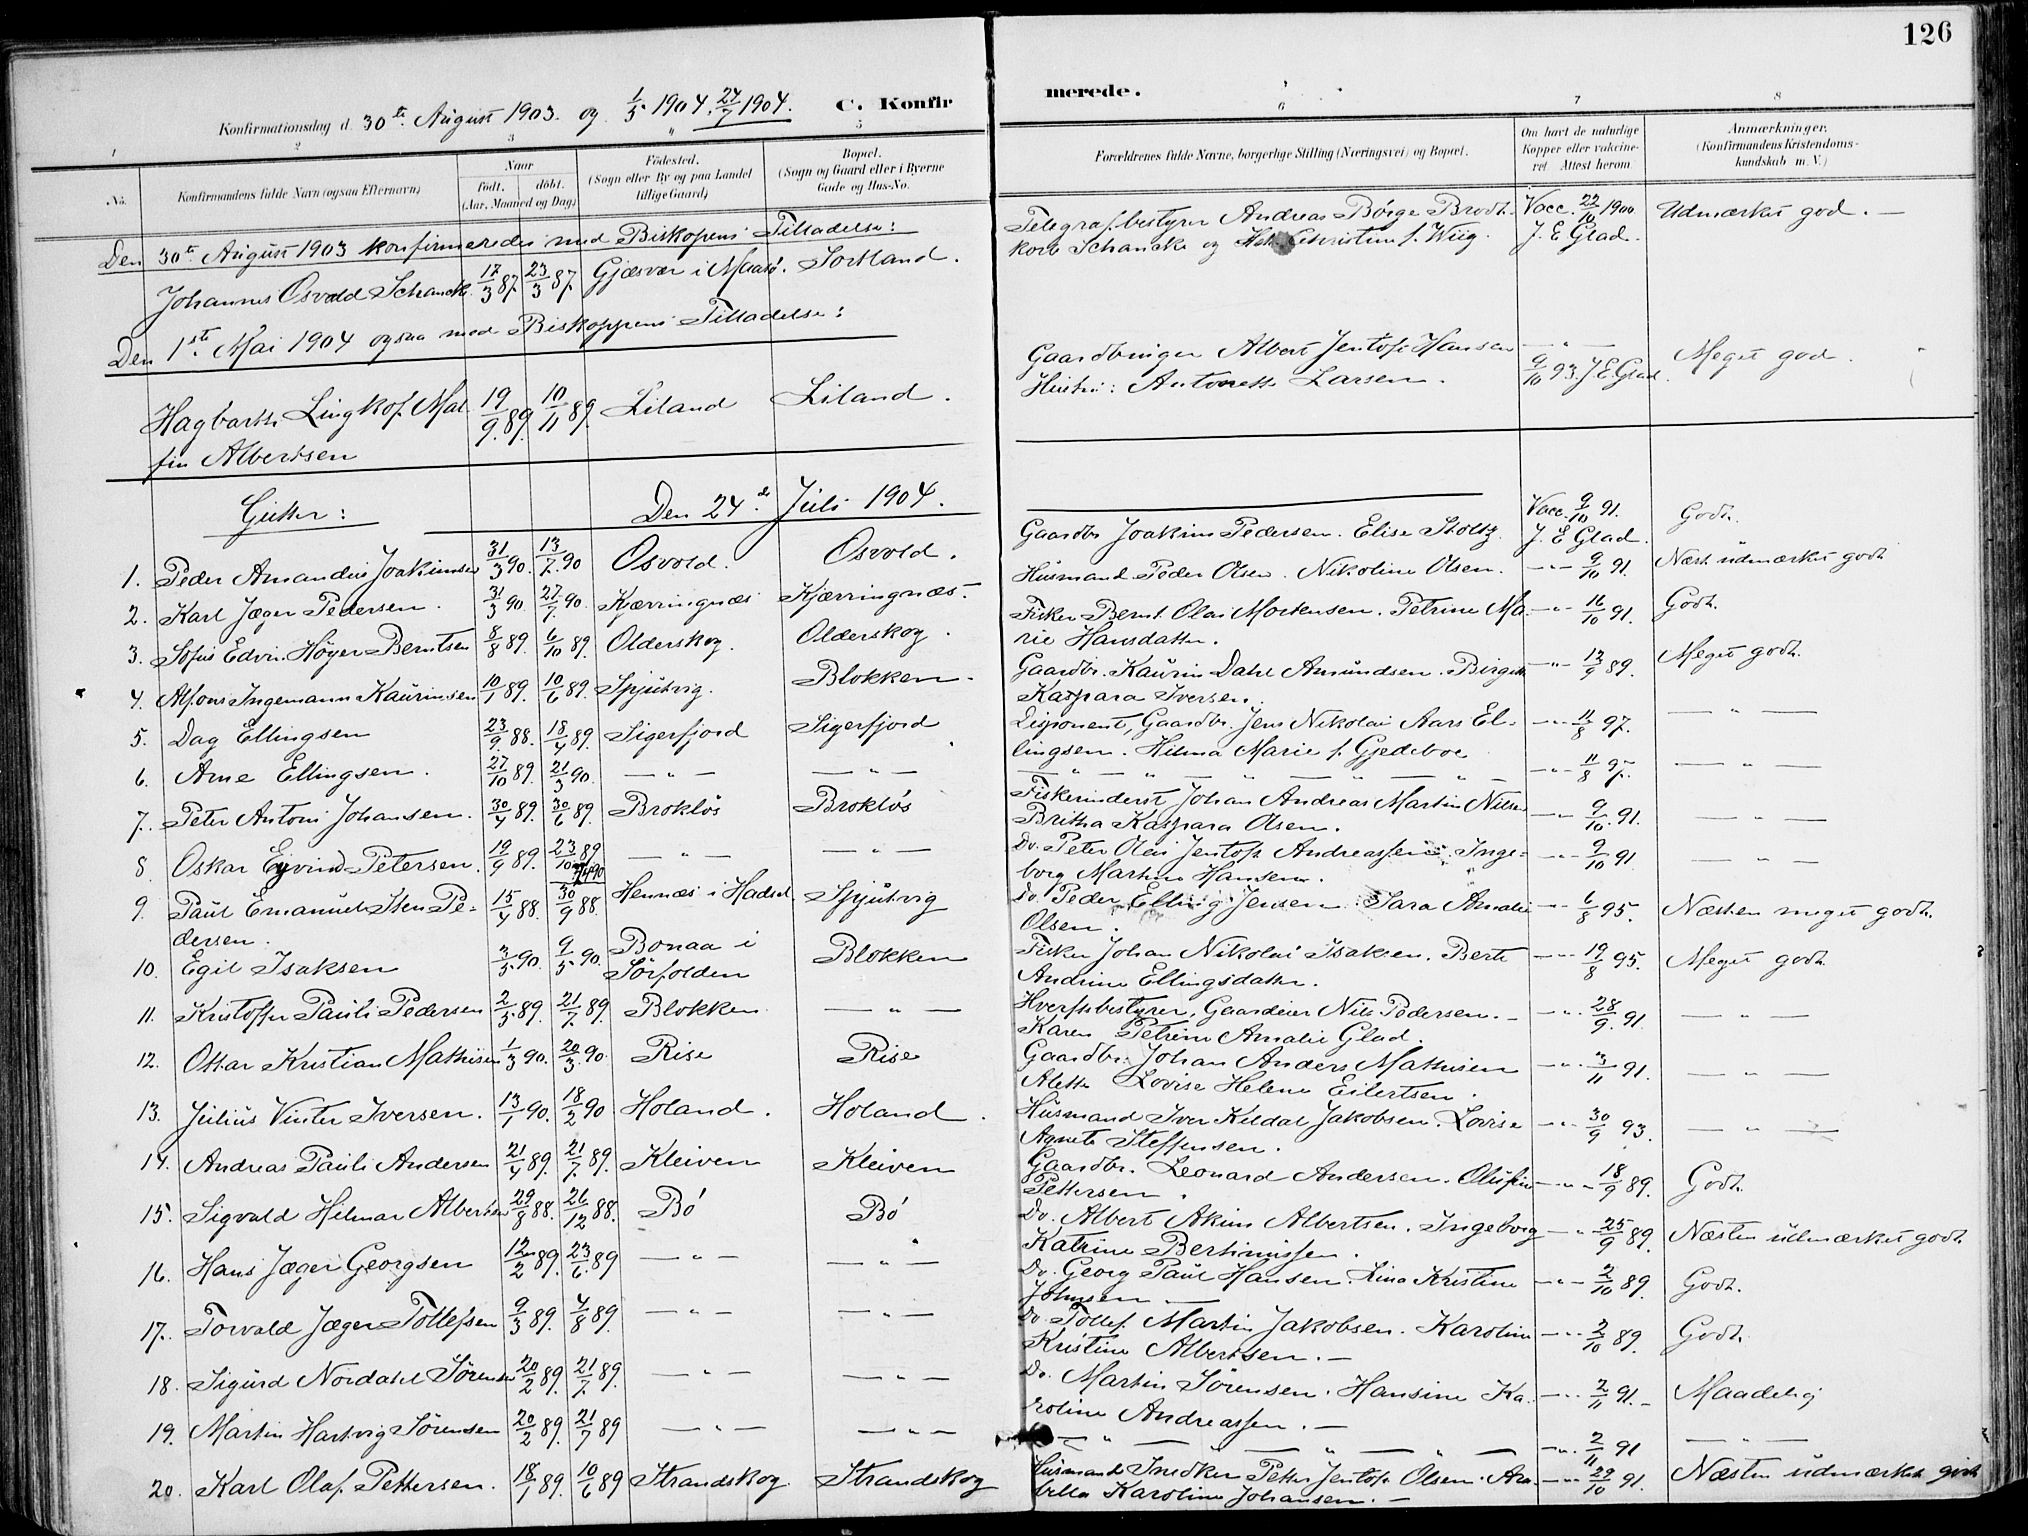 126
Konfirmationsdag d. 30te August 1903 og 1/5 1904. 24/7 1904. C. Konfir merede.
1 2 3 4 5 6 7 8
No. Konfirmandens fulde Navn (ogsaa Efternavn) Naar født. døbt. (Aar, Maaned og Dag) Fødested. (Sogn eller By og paa Landet tillige Gaard) Bopæl. (Sogn og Gaard eller i Byerne Gade og Hus-No. Forældrenes fulde Navne, borgerlige Stilling (Næringsvei) og Bopæl. Om havt de naturlige Kopper eller vakcineret Attest herom Anmærkninger. (Konfirmandens Kristendomskundskab m. V.)
Den 30te August 1903 konfirmeredes med Biskopens Tilladelse:
Johannes Osvald Schanck 17/3 87. 23/3 87. Gjæsvær i Maasø. Sortland. Telegrafbestyrer Andreas Börge Brodt- Vacc. 22/10 1900. Udmærket god. —
korb Schancke og Christine f. Wiig. J. E Glad.
Den 1ste Mai 1904 ogsaa med Biskoppens Tilladelse:
Hagbarth Lingkof Mal- 19/9. 89. 10/11 89. Liland Liland. Gaardbruger Albert Jentoft Hansen — " — Meget god.
fin Albertsen Hustru: Antonette Larsen. 9/10 93. J. E. Glad.
Gutter: Den 24de Juli 1904.
1. Peder Amandus Joakimsen 31/3 90. 13/7. 90 Osvold. Osvold. Gaardbr Joakim Pedersen. Elise Stoltz. Vacc. 9/10 91. J. E Glad. Godt.
2. Karl Jæger Pedersen. 31/3 90. 27/7 90. Kjærringnæs Kjærringnæs. Husmand Peder Olsen. Nikoline Olsen. — " — 9/10 91. Næst udmærket godt
3. Sofus Edvin Høyer Berntsen 8/8 89. 6/10 89. Olderskog. Olderskog. Fisker Bernt Olai Mortensen. Petrine Ma- — " — 16/10 91. Godt.
rie Hansdatter.
4. Alfons Ingemann Kaurinsen 10/1 89. 10/6 89. Spjutvig. Blokken. Gaardbr. Kaurin Dahl Amundsen. Birgitte — " — 12/9 89. Meget godt.
Kaspara Iversen.
5. Dag Ellingsen 23/9. 88. 18/4 89. Sigerfjord Sigerfjord Disponent, Gaardbr. Jens Nikolai Aars El- — " — 11/8 97. — " —
lingsen. Hilma Marie f. Gjedeboe
6. Arne Ellingsen. 27/10 89. 21/3 90. — " — — " — — " — " — " — " — — " — 11/8 97. — " —
7. Peter Antoni Johansen. 30/4 89. 30/6 89. Brokløs Brokløs Fiskerinderst Johan Andreas Martin Nilsen — " — 9/10. 91. — " —
Britha Kaspara Olsen.
8. Oskar Eyvind Petersen. 19/9 89. 23/10 89 — " — — " — Do. Peter Olai Jentoft Andreassen. Inge- — " — 9/10 91. — " —
borg Martine Hansen.
9. Paul Emanuel Sten Pe- 15/4 88. 30/9 88. Hennæs i Hadsel Spjutvig Do. Peder Elling Jensen Sara Amalie — " — 6/8 95. Næsten meget godt.
dersen. Olsen.
10. Egil Isaksen 3/5 90. 9/5 90. Bonaa i Sörfolden Blokken Fisker Johan Nikolai Isaksen. Berte — " — 19/8 95. Meget godt.
Andrine Ellingsdatter.
11. Kristoffer Pauli Pedersen 2/5 89. 21/7. 89. Blokken — " — Hverfsbestyrer, Gaardeier Nils Pedersen. — — " — 28/9. 91. — " —
Karen Petrine Amalie Glad.
12. Ottar Kristian Mathisen 1/3 90. 20/3. 90 Rise Rise Gaardbr. Johan Anders Mathisen — " — 3/11 91. — " —
Alette Lovise Helene Eilertsen.
13. Julius Vinter Iversen. 13/1 90. 18/2 90 Holand. Holand. Husmand Iver Kildal Jakobsen. Lovise — " — 30/9 93. — " —
Agnete Steffensen.
14. Andreas Pauli Andersen 21/4 89. 21/7 89. Kleiven Kleiven Gaardbr. Leonard Andersen. Olufine — " — 18/9 89. Godt.
Pettersen.
15. Sigvald Hilmar Albertsen 29/8 88. 26/12 88. Bö Bö Do. Albert Akim Albertsen. Ingeborg — " — 25/9 89. Næsten udmærket godt.
Katrine Bertinussen.
16. Hans Jæger Georgsen 12/2 89. 23/6. 89 — " — — " — Do. Georg Paul Hansen. Lina Kristine — " — 2/10 89. Godt.
Johnsen —
17. Torvald Jæger Tollefsen 9/3 89. 4/8 89. — " — — " — Do Tollef Martin Jakobsen. Karoline — " — 2/10 89. Godt.
Kristine Albertsen. —
18. Sigurd Nordahl Sörensen 20/2 89. 21/7. 89. — " — — " — Do. Martin Sörensen. Hansine Ka- — " — 2/11 91. — Maadelig
roline Andreassen. —
19. Martin Hartvig Sörensen 20/2 89. 21/7 89 — " — — " — — " — " — " — — " — 2/11 91 — " —
20. Karl Olaf Pettersen. 18/1 89. 10/6 89 Strandskog Strandskog Husmand Snedker Petter Jentoft Olsen. Ara- — " — 29/10 91. Næsten udmærket godt
bella Karoline Johansen. —